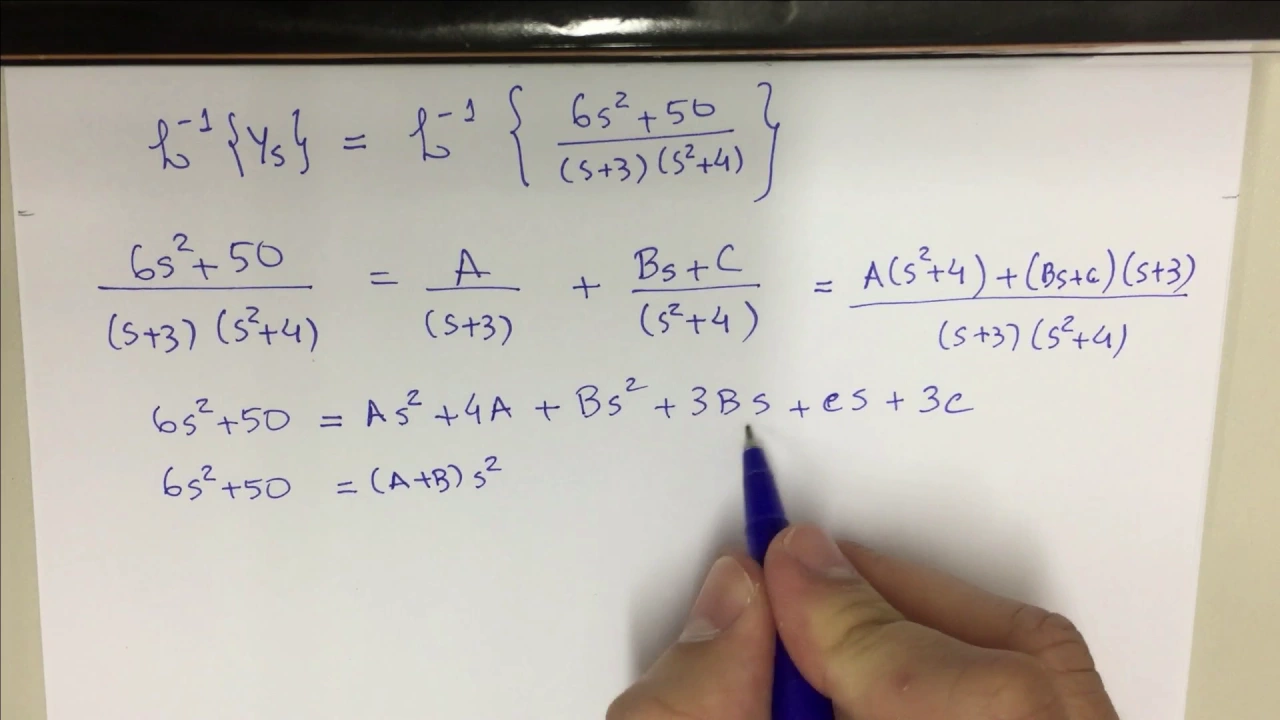 ℒ⁻¹{Ys} = ℒ⁻¹ { (6s²+50) / ((s+3)(s²+4)) }
(6s²+50) / ((s+3)(s²+4)) = A/(s+3) + (Bs+C)/(s²+4) = (A(s²+4)+(Bs+c)(s+3)) / ((s+3)(s²+4))
6s²+50 = As²+4A + Bs² + 3Bs + cs + 3c
6s²+50 = (A+B)s²